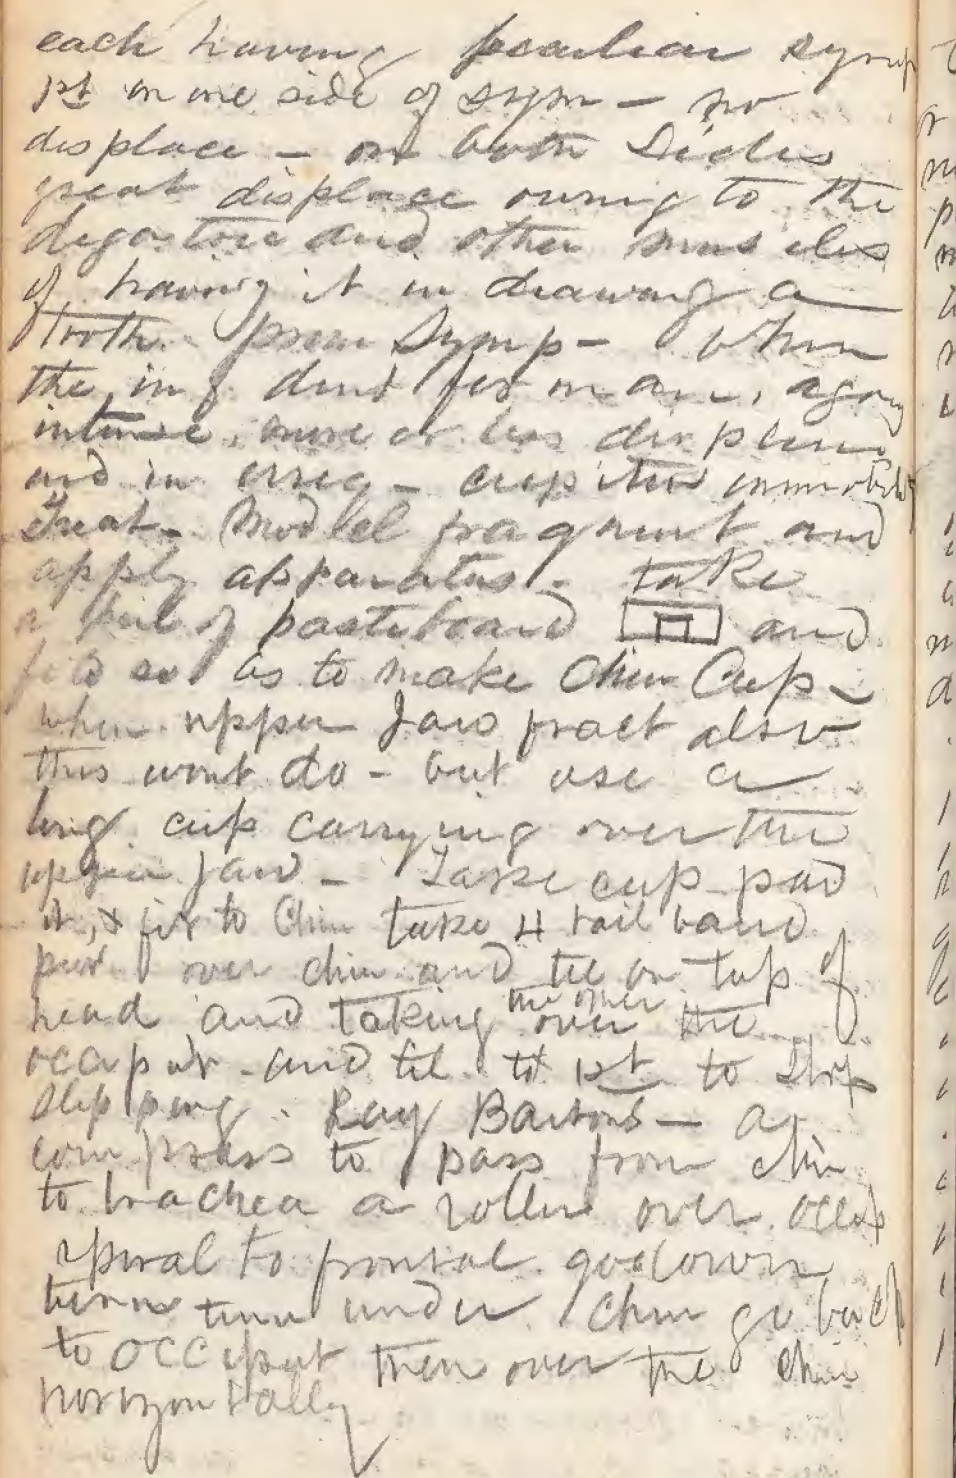 each having peculiar symp
1st on one side of sym - no
displace - on both Sides
great displace owing to the
digastric and other muscles
of having it in drawing a
tooth. Symp - When
the inf. dent for man, agony
intense, more or less displace
and in irreg - crepitus immobility
Treat - Model fragment and
apply apparatus. take
a of pasteboard and
fold so as to make Chin Cup -
when upper Jaw fract also
this wont do - but use a
long cup carrying over the
upper jaw - Take cup pad
it, & fix to Chin take 4 tail band
over chin and tie on top of
head and taking the other over the
occiput and tie to 1st to stop
slipping. Bartons - a
compress to pass from chin
to trachea a roller over occip
spiral to frontal go down
turn under Chin go back
to occiput then over the chin
horizontally